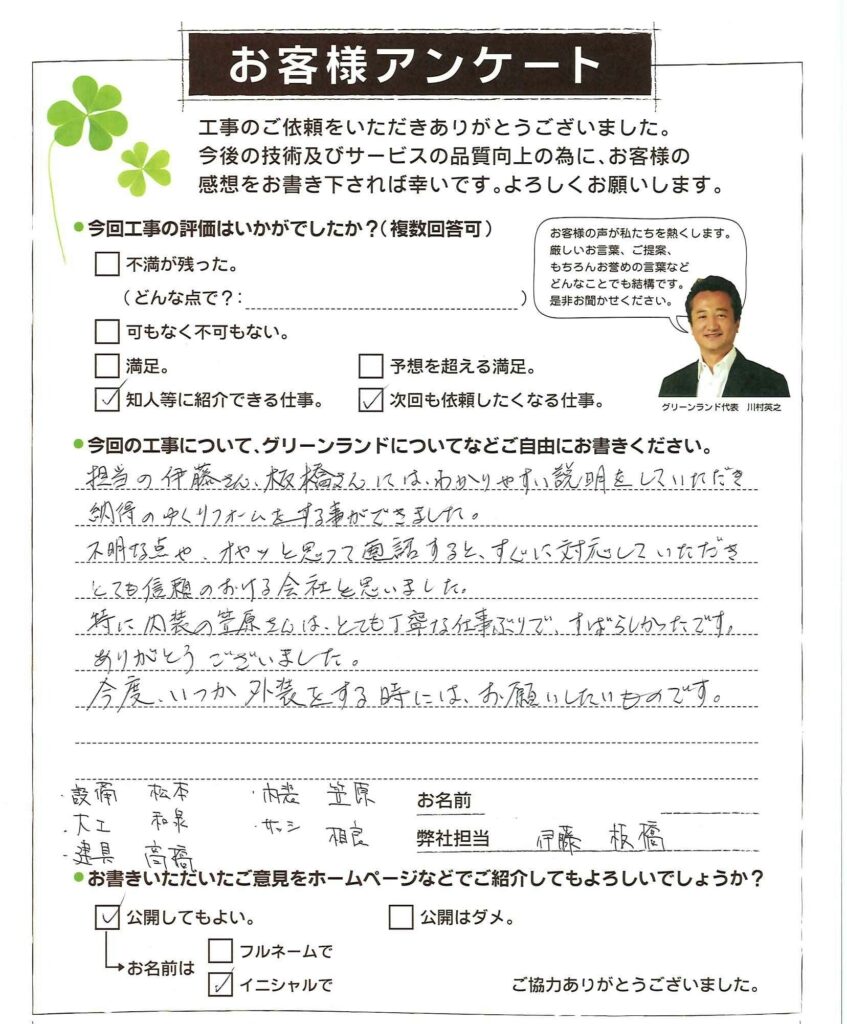 お客様アンケート
工事のご依頼をいただきありがとうございました。
今後の技術及びサービスの品質向上の為に、お客様の
感想をお書き下されば幸いです。よろしくお願いします。
今回工事の評価はいかがでしたか？（複数回答可）
不満が残った。
（どんな点で？：　　　）
可もなく不可もない。
満足。
予想を超える満足。
知人等に紹介できる仕事。
次回も依頼したくなる仕事。
お客様の声が私たちを熱くします。
厳しいお言葉、ご提案、
もちろんお誉めの言葉など
どんなことでも結構です。
是非お聞かせください。
グリーンランド代表　川村英之
今回の工事について、グリーンランドについてなどご自由にお書きください。
担当の伊藤さん、板橋さんには、わかりやすい説明をしていただき
納得のゆくリフォームをする事ができました。
不明な点や、オヤッと思って電話すると、すぐに対応していただき
とても信頼のおける会社と思いました。
特に内装の笠原さんは、とても丁寧な仕事ぶりで、すばらしかったです。
ありがとうございました。
今度、いつか外装をする時には、お願いしたいものです。
・設備　松本　・内装　笠原
・大工　和泉　・サッシ　相良
・建具　高橋
お名前
弊社担当　伊藤　板橋
お書きいただいたご意見をホームページなどでご紹介してもよろしいでしょうか？
公開してもよい。
公開はダメ。
お名前は
フルネームで
イニシャルで
ご協力ありがとうございました。